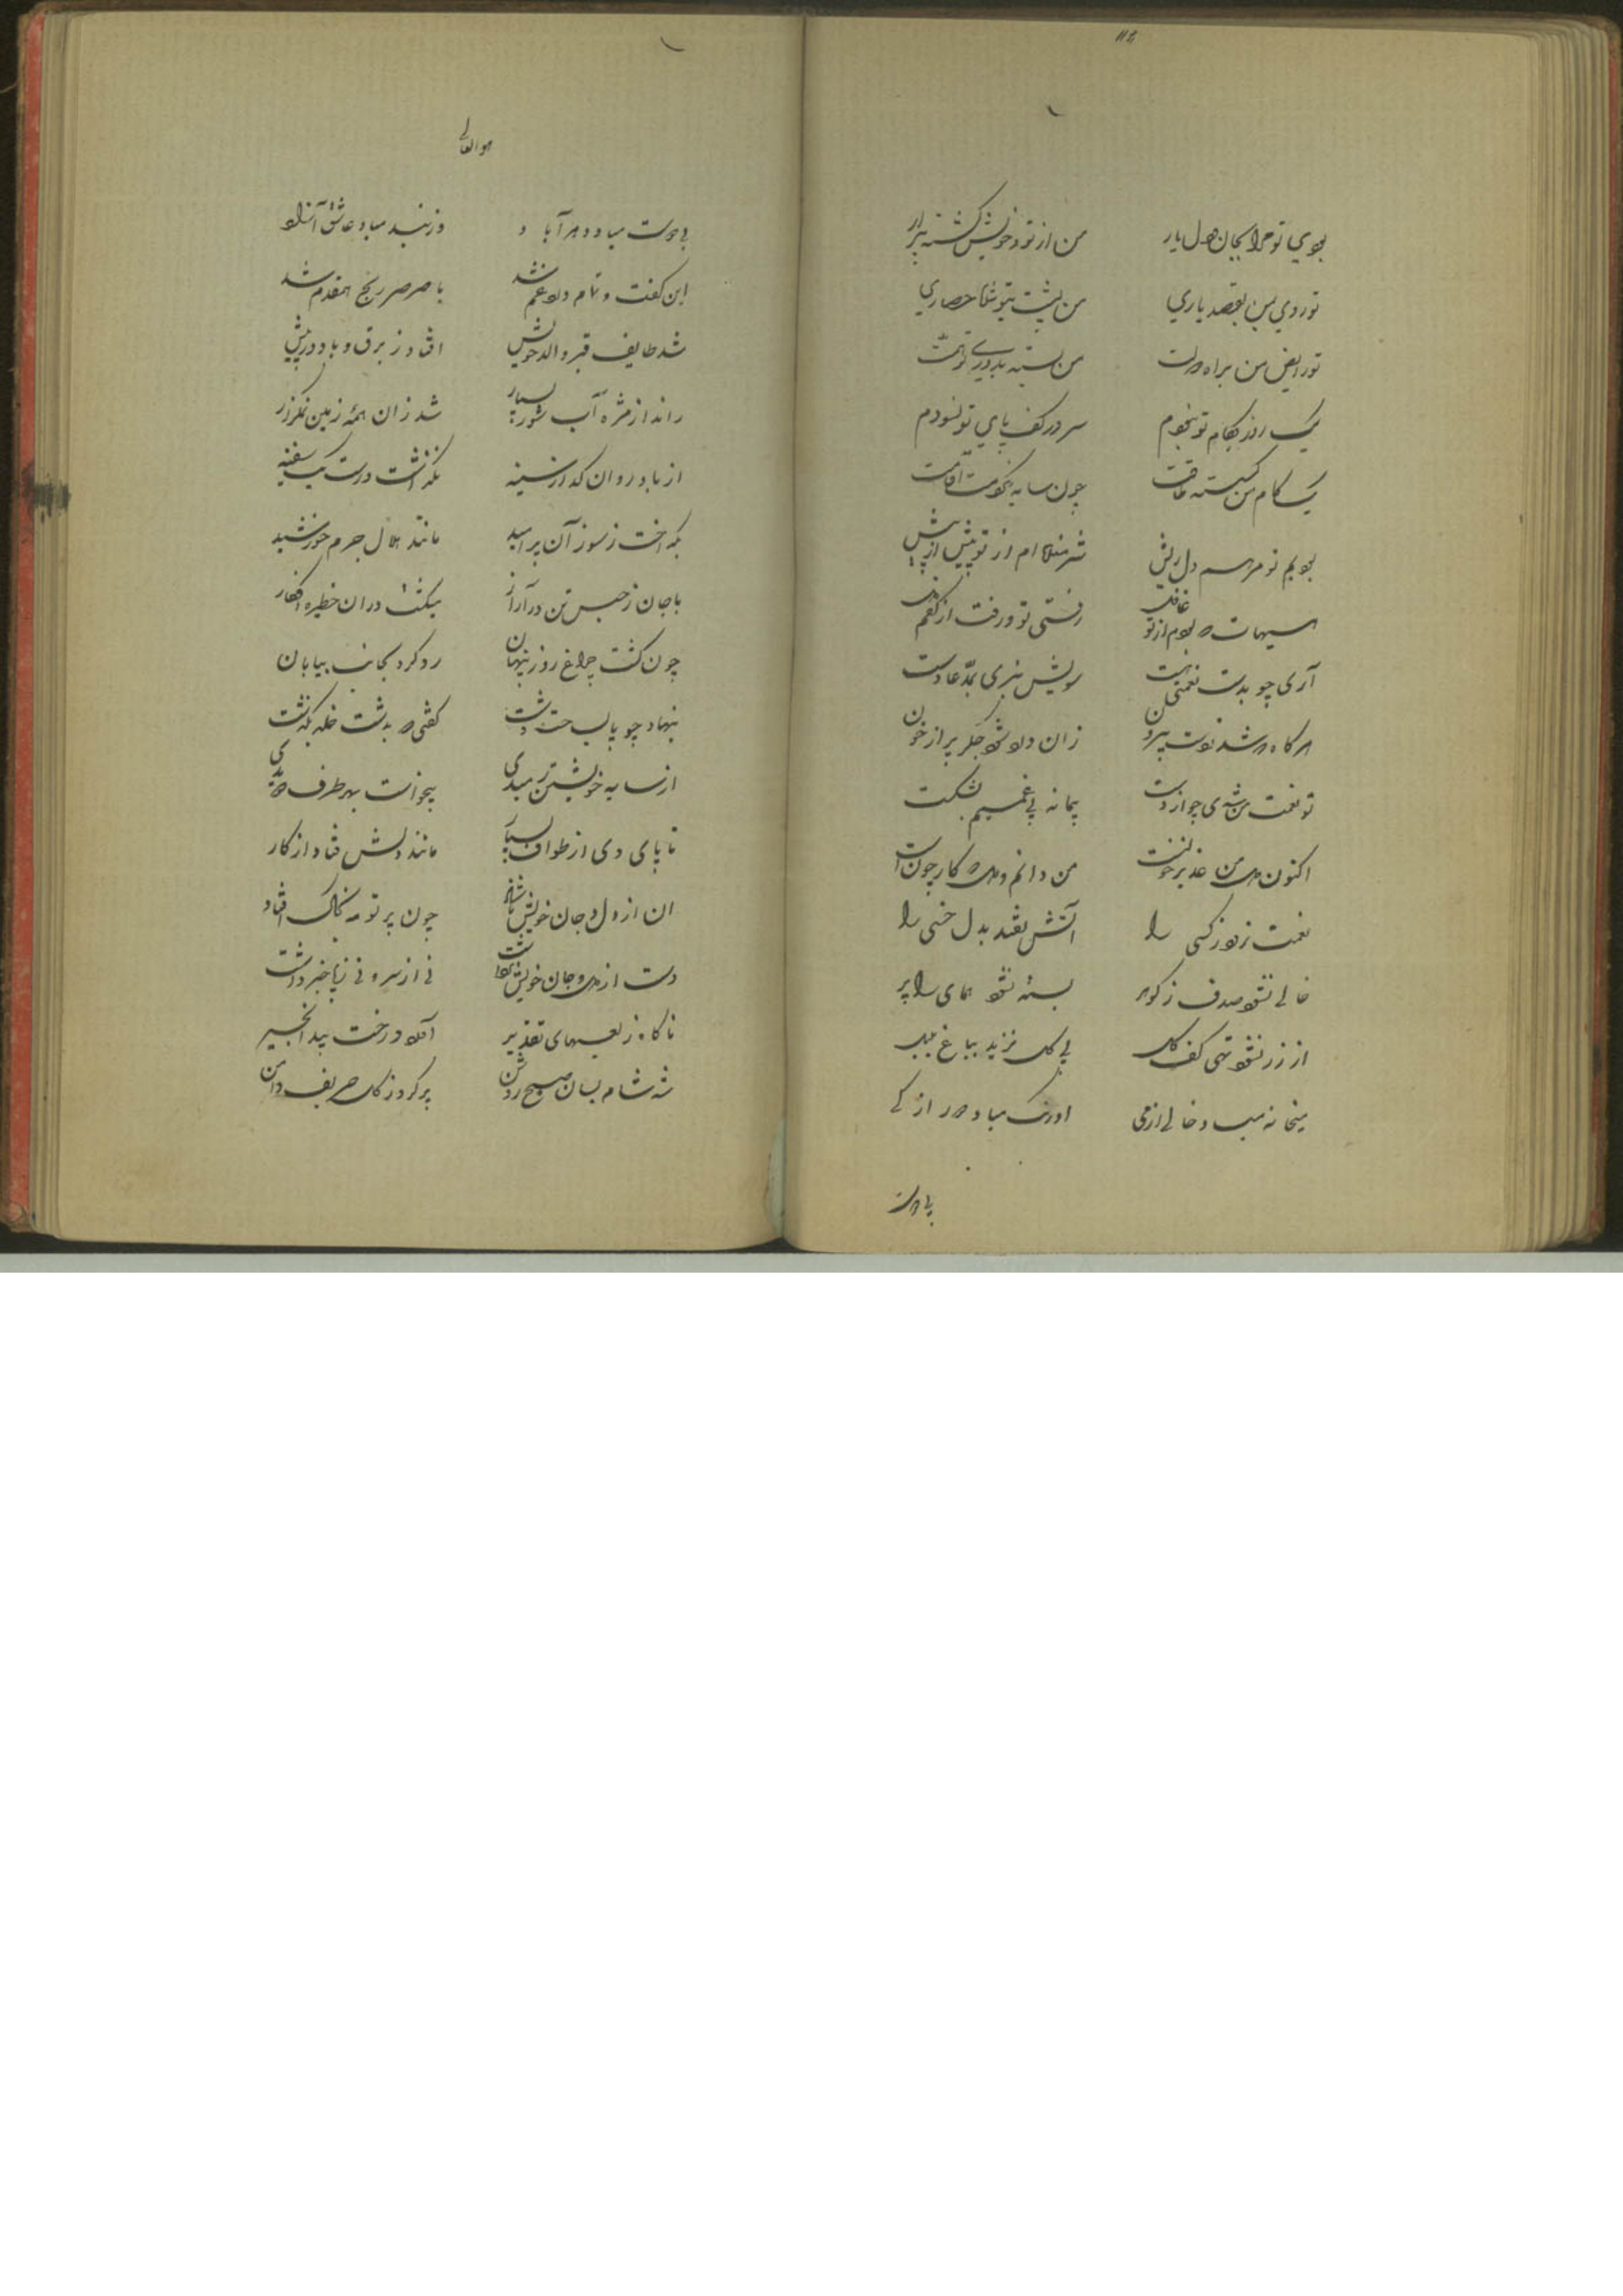 ۱۱۴
بودی تو مرا بجان و دل یار من از تو و خویش گشته بیزار
تو روی بمن بقصد یاری من پشت بتو شکار حصاری
تو رایض من براه دولت من بسته بدوری تو همت
یک روز بکام تو نبودم سر در کف پای تو نسودم
یک کام من چون سایه نکردمت اقامت
بودیم تو مرهم دل ریش شرمنده ام از تو بیش از پیش
هیهات که بودم از تو غافل رفتی تو و رفت از کفم دل
آری چو بدست نعمتی هست سویش نبری بمد عادت
هر گاه که شد ز دست بیرون زان دل شود و جگر پر از خون
تو نعمت من شدی چو از دست پیمانه بی غمیم بشکست
اکنون دل من من دانم و دل که کار چون است
نعمت نرود ز کسی را آتش نفتد بدل خسی را
خالی نشود صدف ز گوهر بسته نشود همای را پر
از زر نشود تهی کف گل بی گل نزید بباغ بلبل
میخانه مباد خالی از می اورنگ مباد دور از کی
بی دوست
هو العالی
بی دوست مباد و دهر آباد وز بند مباد عاشق آزاد
این گفت و تمام دل غم شد با صرصر رنج همقدم شد
شد طایف قبر والد خویش افتاد ز برق و باد در پیش
راند از مژه آب شور بسیار شد زان همه زمین نمکزار
از باد روان گداز سینه نگذاشت درست یک سفینه
بگداخت ز سوز آن پر امید مانند هلال جرم خورشید
با جان ز حبس تن در آزار میگشت در آن خطیره افکار
چون گشت چراغ روز پنهان رو کرد بجانب بیابان
بنهاد چو پا بساحت دشت گفتی که بدشت خله بگذشت
از سایه خویشتن رمیدی میخواست بهر طرف دویدی
تا پای وی از طواف بسیار مانند دلش فتاد از کار
آن از دل و جان خویش ناشاد چون پرتو مه بخاک افتاد
دست از دل و جان خویش برداشت نی از سر و نی ز پا خبر داشت
ناگاه ز لعبهای تقدیر آمد درخت بید انجیر
شد شام بسان صبح روشن پر کرد ز گل حریف دامن